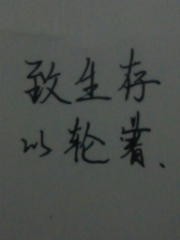 致生存
以轮着、